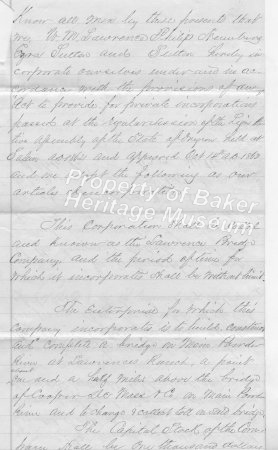 Know all men by these presents that
we W. M. Lawrence Philip
Cyrus Sutton and Sutton hereby in-
corporate ourselves under and in ac-
cordance with the provisions of an
Act to provide for private incorporations
passed at the regular session of the Legis
ative Assembly of the State of Oregon held at
Salem and approved Oct
and we adopt the following as our
articles of
Property of Baker
Heritage Museum
This Corporation shall be
and known as the Lawrence Bridge
Company and the period of time for
which it incorporates shall be without limit
The Enterprise for which this
Company incorporates is to build, construct
and complete a bridge on
River at Lawrences Ranch a point
one and a half miles above the bridge
of & Co on
River and to charge & collect toll on said bridge
The Capital Stock of the Com
pany shall be one thousand dollars